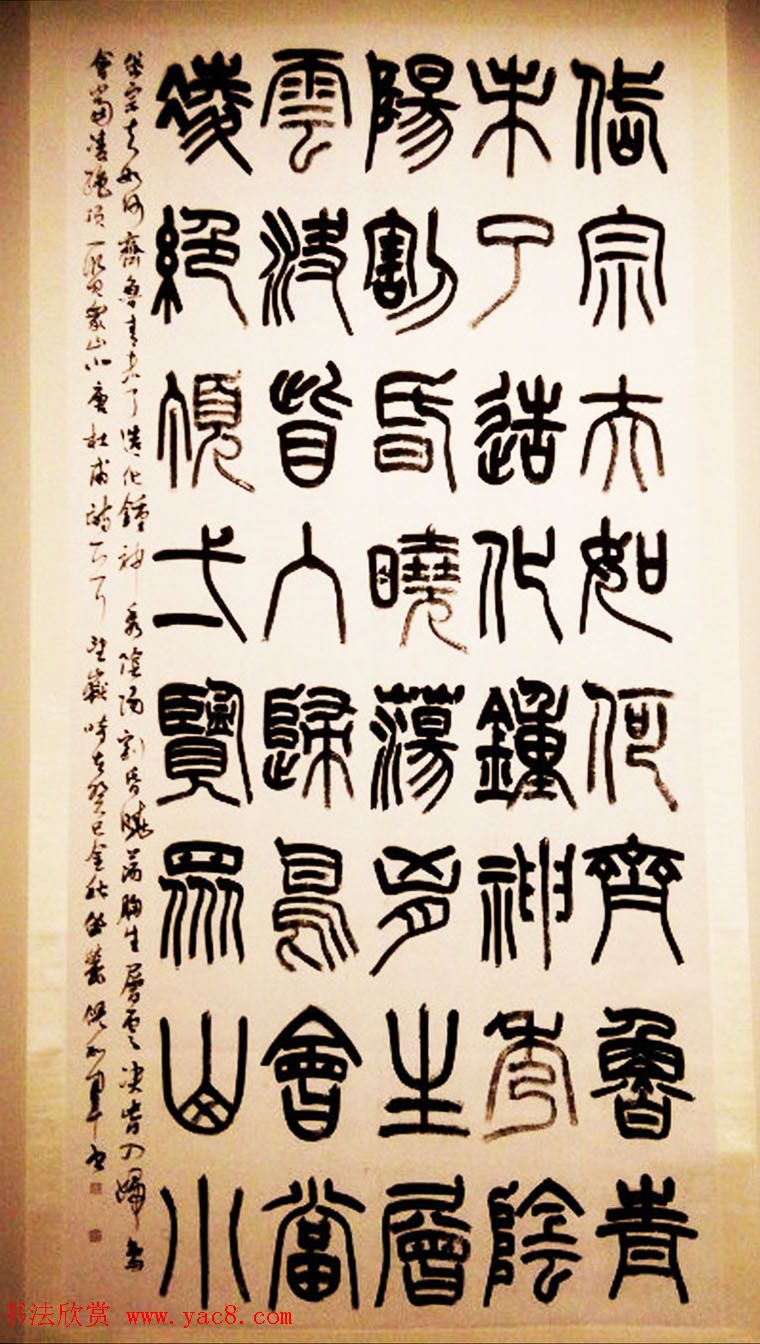 岱宗夫如何齊魯青
未了造化鍾神秀陰
陽割昏曉蕩胷生層
雲決眥入歸鳥會當
凌絕頂弌覽眾山小
岱宗夫如何齊魯青未了造化鍾神秀陰陽割昏曉蕩胸生層雲決眥入歸鳥
會當凌絕頂一覽眾山小唐杜甫詩望嶽時在癸巳金秋
书法欣赏 www.yac8.com